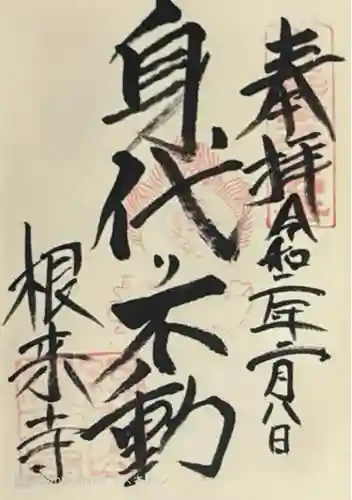 奉拝 令和二年二月八日
身代り不動
根来寺